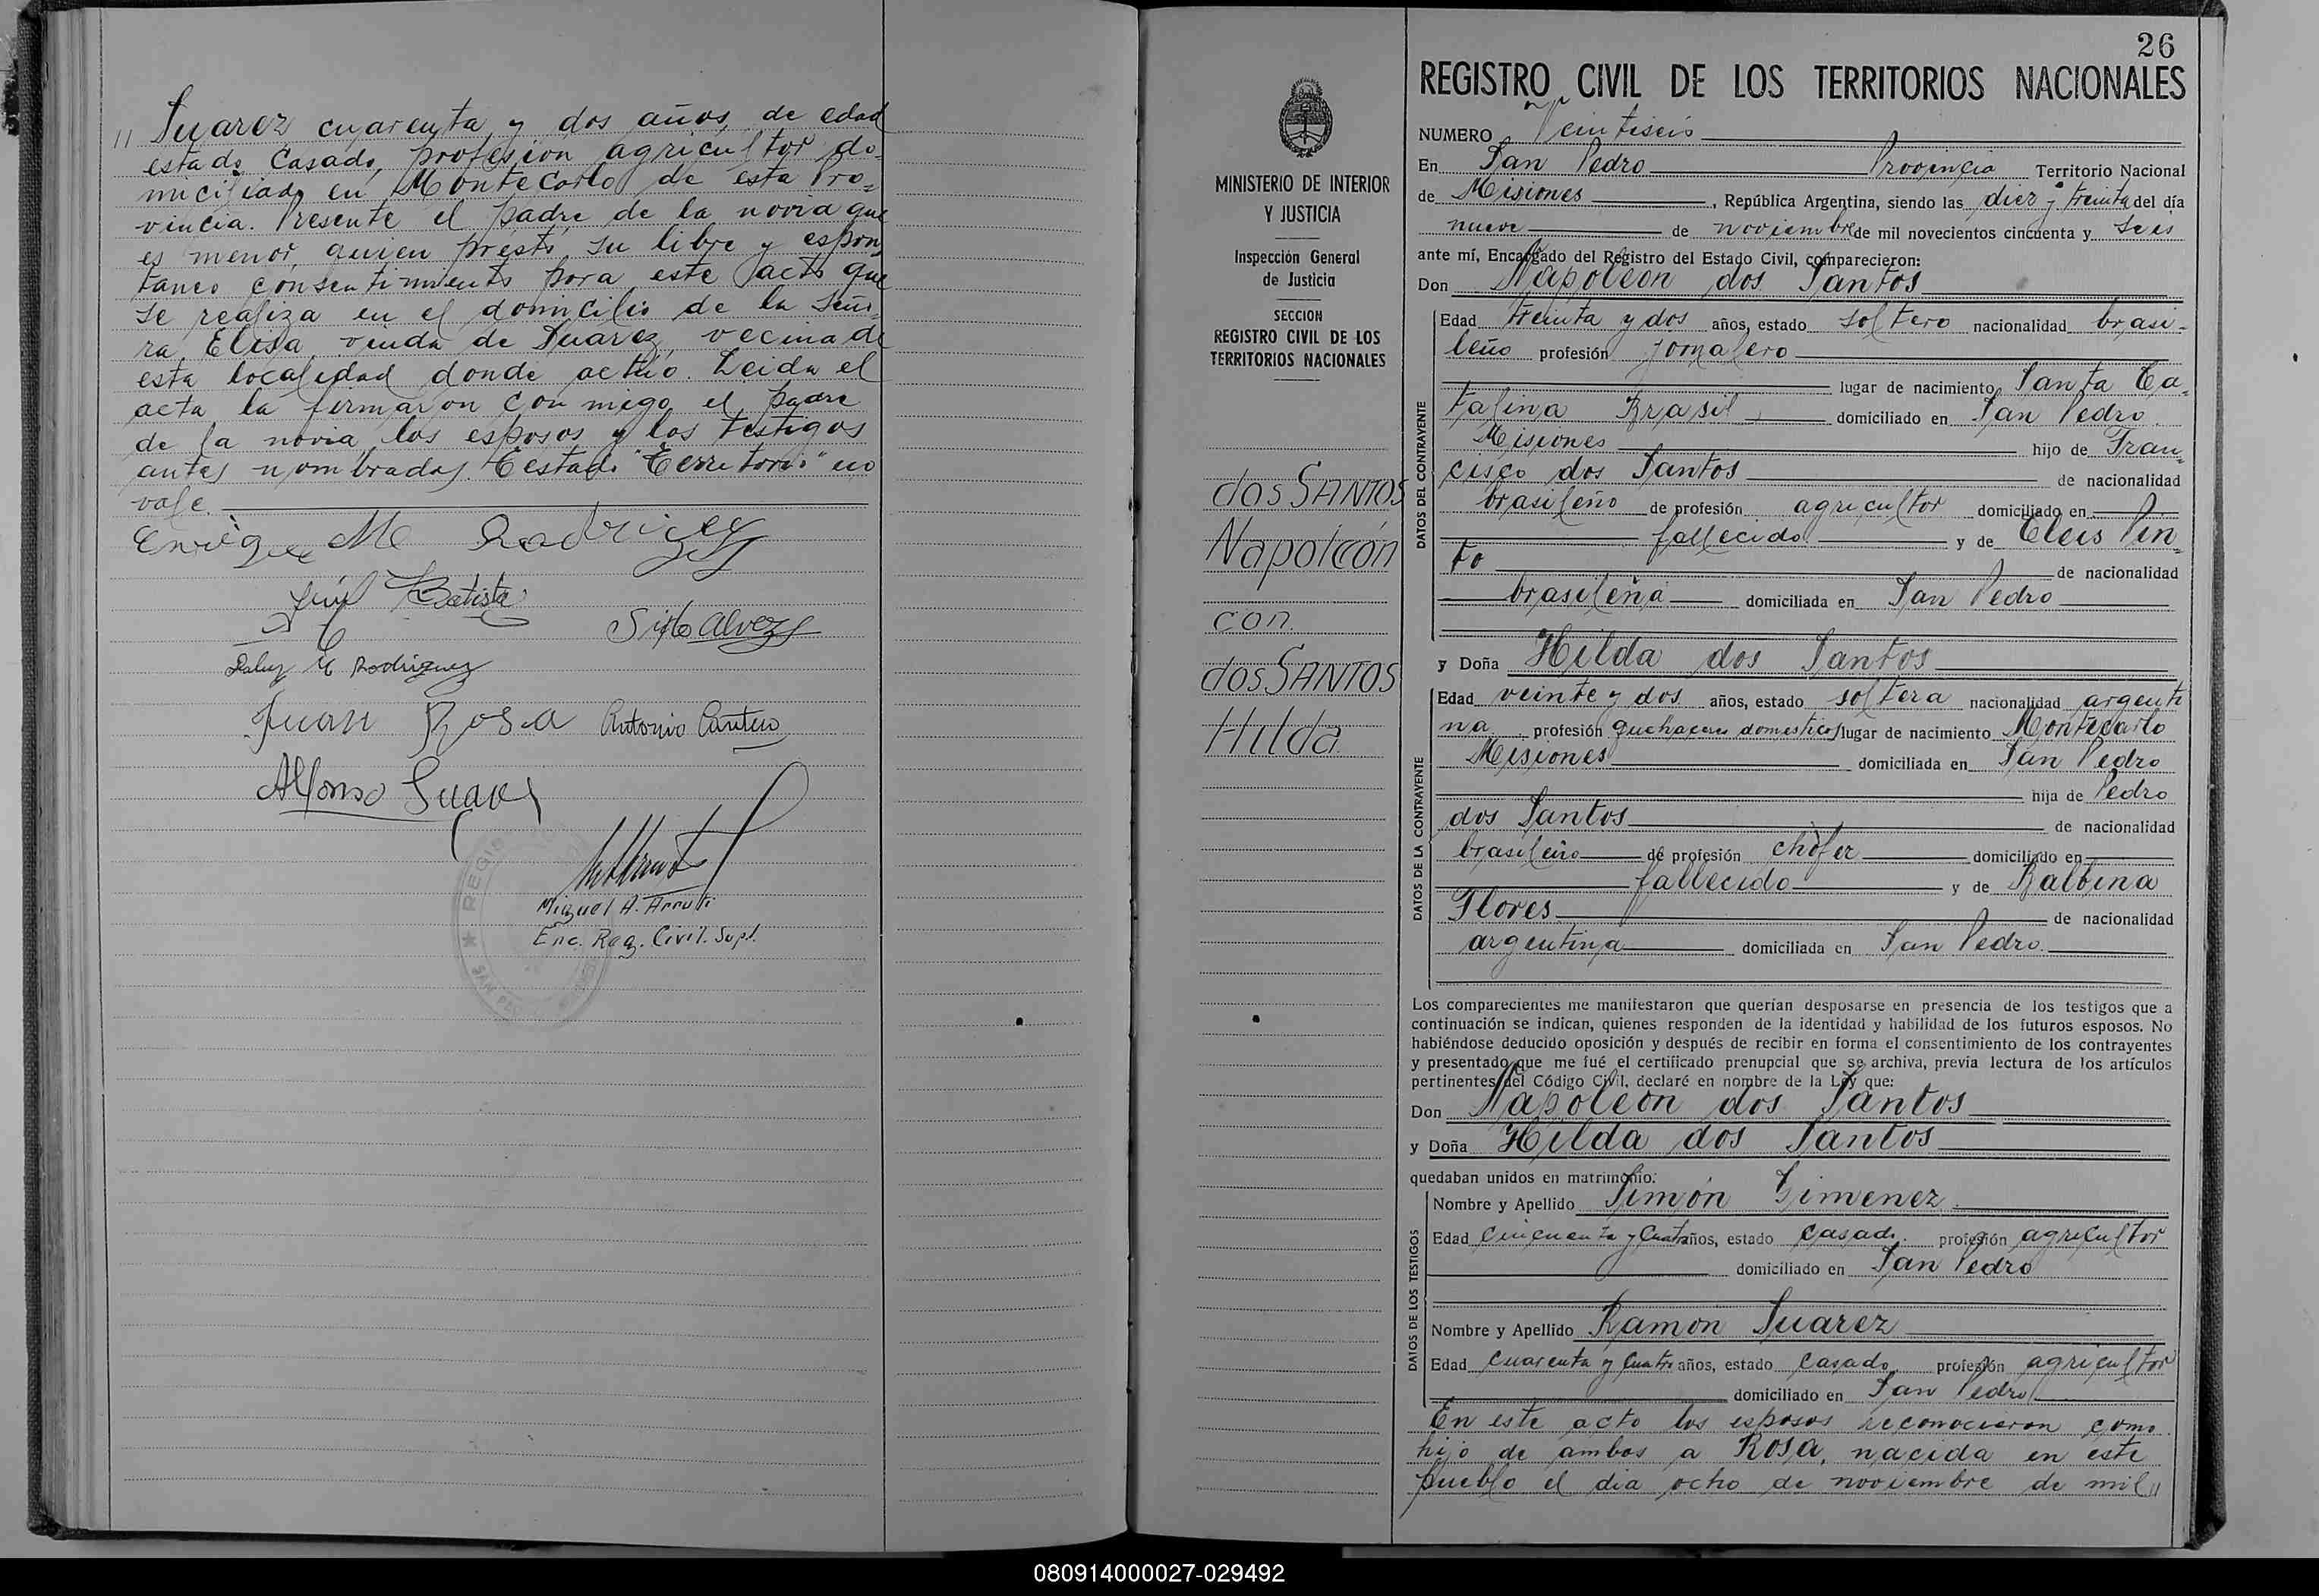 " Suarez cuarenta y dos años de edad
estado casado, profesion agricultor do-
miciliado en Montecarlo de esta Pro=
vincia. Presente el padre de la novia que
es menor, quien prestó su libre y espon
taneo consentimiento para este acto que
se realiza en el domicilio de la Seño-
ra Elisa viuda de Suarez, vecina de
esta localidad donde actúo. Leida el
acta la firmaron conmigo el padre
de la novia los esposos y los testigos
antes nombrados. Testado "Territorio" no
vale.
Enrique M Rodriguez
Batista
Sixto Alvez
Rodriguez
Juan Rosa Antonio
Alfonso Suarez
Miguel A. Arruti
Enc. Reg. Civil. Supl.
REGIS
SAN PED
26
MINISTERIO DE INTERIOR
Y JUSTICIA
Inspección General
de Justicia
SECCION
REGISTRO CIVIL DE LOS
TERRITORIOS NACIONALES
dos SANTOS
Napoleón
con
dos SANTOS
Hilda
REGISTRO CIVIL DE LOS TERRITORIOS NACIONALES
NUMERO Veintiseis
En San Pedro Provincia Territorio Nacional
de Misiones, República Argentina, siendo las diez y treinta del día
nueve de noviembre de mil novecientos cincuenta y seis
ante mí, Encargado del Registro del Estado Civil, comparecieron:
Don Napoleón dos Santos
DATOS DEL CONTRAYENTE
Edad treinta y dos años, estado soltero nacionalidad brasi-
leño profesión jornalero
lugar de nacimiento Santa Ca-
talina Brasil domiciliado en San Pedro
Misiones hijo de Fran=
cisco dos Santos de nacionalidad
brasileño de profesión agricultor domiciliado en
fallecido y de Cleis Pin=
to de nacionalidad
brasileña domiciliada en San Pedro
y Doña Hilda dos Santos
DATOS DE LA CONTRAYENTE
Edad veinte y dos años, estado soltera nacionalidad argenti
na profesión quehaceres domesticos lugar de nacimiento Montecarlo
Misiones domiciliada en San Pedro
hija de Pedro
dos Santos de nacionalidad
brasileño de profesión chófer domiciliado en
fallecido y de Balbina
Flores de nacionalidad
argentina domiciliada en San Pedro.
Los comparecientes me manifestaron que querían desposarse en presencia de los testigos que a
continuación se indican, quienes responden de la identidad y habilidad de los futuros esposos. No
habiéndose deducido oposición y después de recibir en forma el consentimiento de los contrayentes
y presentado que me fué el certificado prenupcial que se archiva, previa lectura de los artículos
pertinentes del Código Civil, declaré en nombre de la Ley que:
Don Napoleón dos Santos
y Doña Hilda dos Santos
quedaban unidos en matrimonio.
DATOS DE LOS TESTIGOS
Nombre y Apellido Simón Gimenez
Edad cincuenta y cuatro años, estado casado. profesión agricultor
domiciliado en San Pedro
Nombre y Apellido Ramón Suarez
Edad cuarenta y cuatro años, estado casado profesión agricultor
domiciliado en San Pedro
En este acto los esposos reconocieron como
hijo de ambos a Rosa, nacida en este
pueblo el dia ocho de noviembre de mil "
080914000027-029492